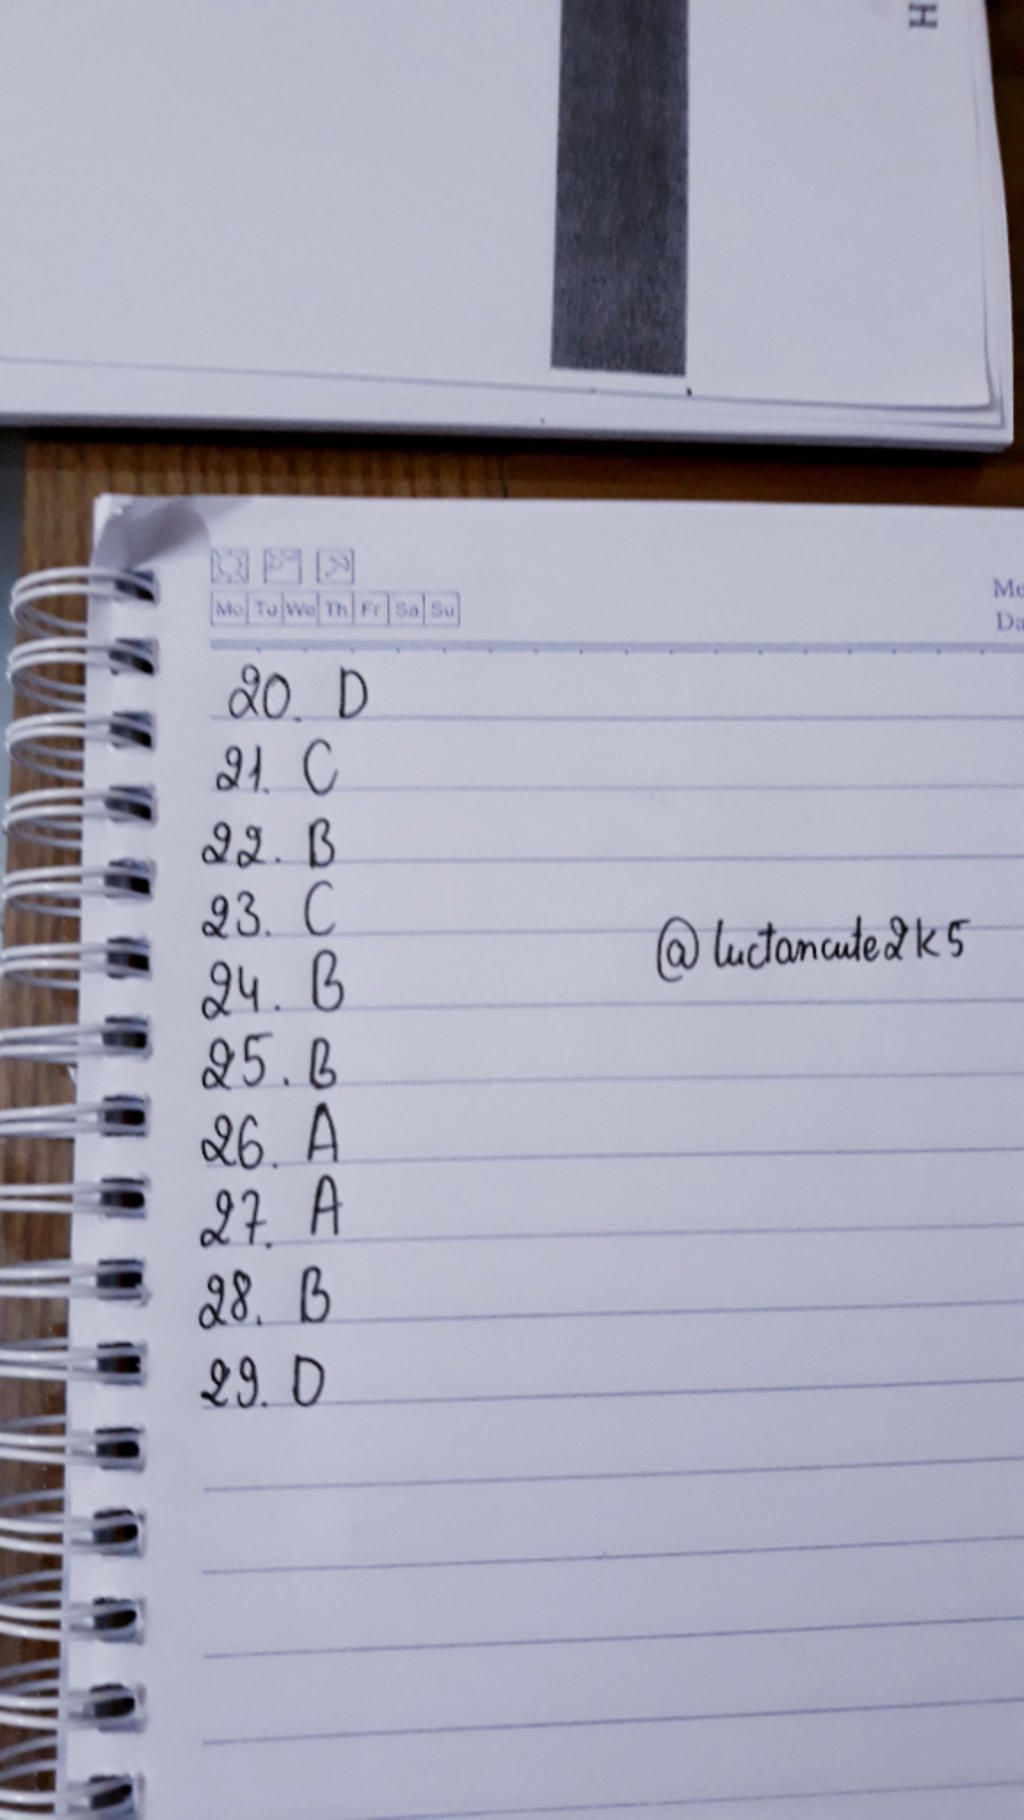 H
Mo Tu We Th Fr Sa Su
20. D
21. C
22. B
23. C
@luctancute2k5
24. B
25. B
26. A
27. A
28. B
29. D